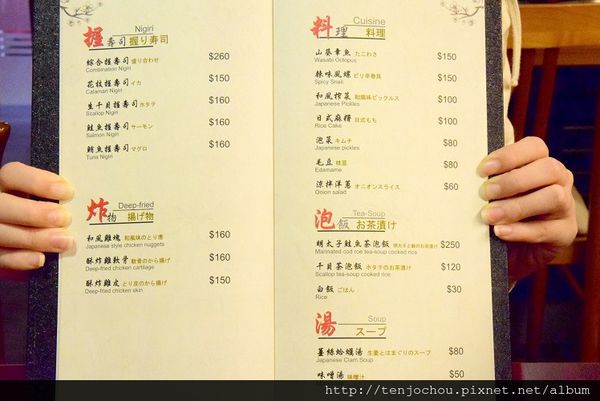 Nigiri
握壽司 握り寿司
綜合握壽司 盛り合わせ $260
Combination Nigiri
花枝握壽司 イカ $150
Calamari Nigiri
生干貝握壽司 ホタテ $160
Scallop Nigiri
鮭魚握壽司 サーモン $160
Salmon Nigiri
鮪魚握壽司 マグロ $160
Tuna Nigiri
Deep-fried
炸物 揚げ物
和風雞塊 和風味のとり唐 $160
Japanese style chicken nuggets
酥炸雞軟骨 軟骨のから揚げ $160
Deep-fried chicken cartilage
酥炸雞皮 とり皮のから揚げ $150
Deep-fried chicken skin
Cuisine
料理 料理
山葵章魚 たこわさ $150
Wasabi Octopus
辣味風螺 ピリ辛巻貝 $150
Spicy Snail
和風榨菜 和風味ピックルス $100
Japanese Pickles
日式麻糬 日式もち $100
Rice Cake
泡菜 キムチ $80
Japanese pickles
毛豆 枝豆 $80
Edamame
涼拌洋蔥 オニオンスライス $60
Onion salad
Tea-Soup
泡飯 お茶漬け
明太子鮭魚茶泡飯 明太子と鮭のお茶漬け $250
Marinated cod roe tea-soup cooked rice
干貝茶泡飯 ホタテのお茶漬け $120
Scallop tea-soup cooked rice
白飯 ごはん $30
Rice
Soup
湯 スープ
薑絲蛤蠣湯 生姜とはまぐりのスープ $80
Japanese Clam Soup
味噌湯 味噌汁 $50
http://tenjochou.pixnet.net/album